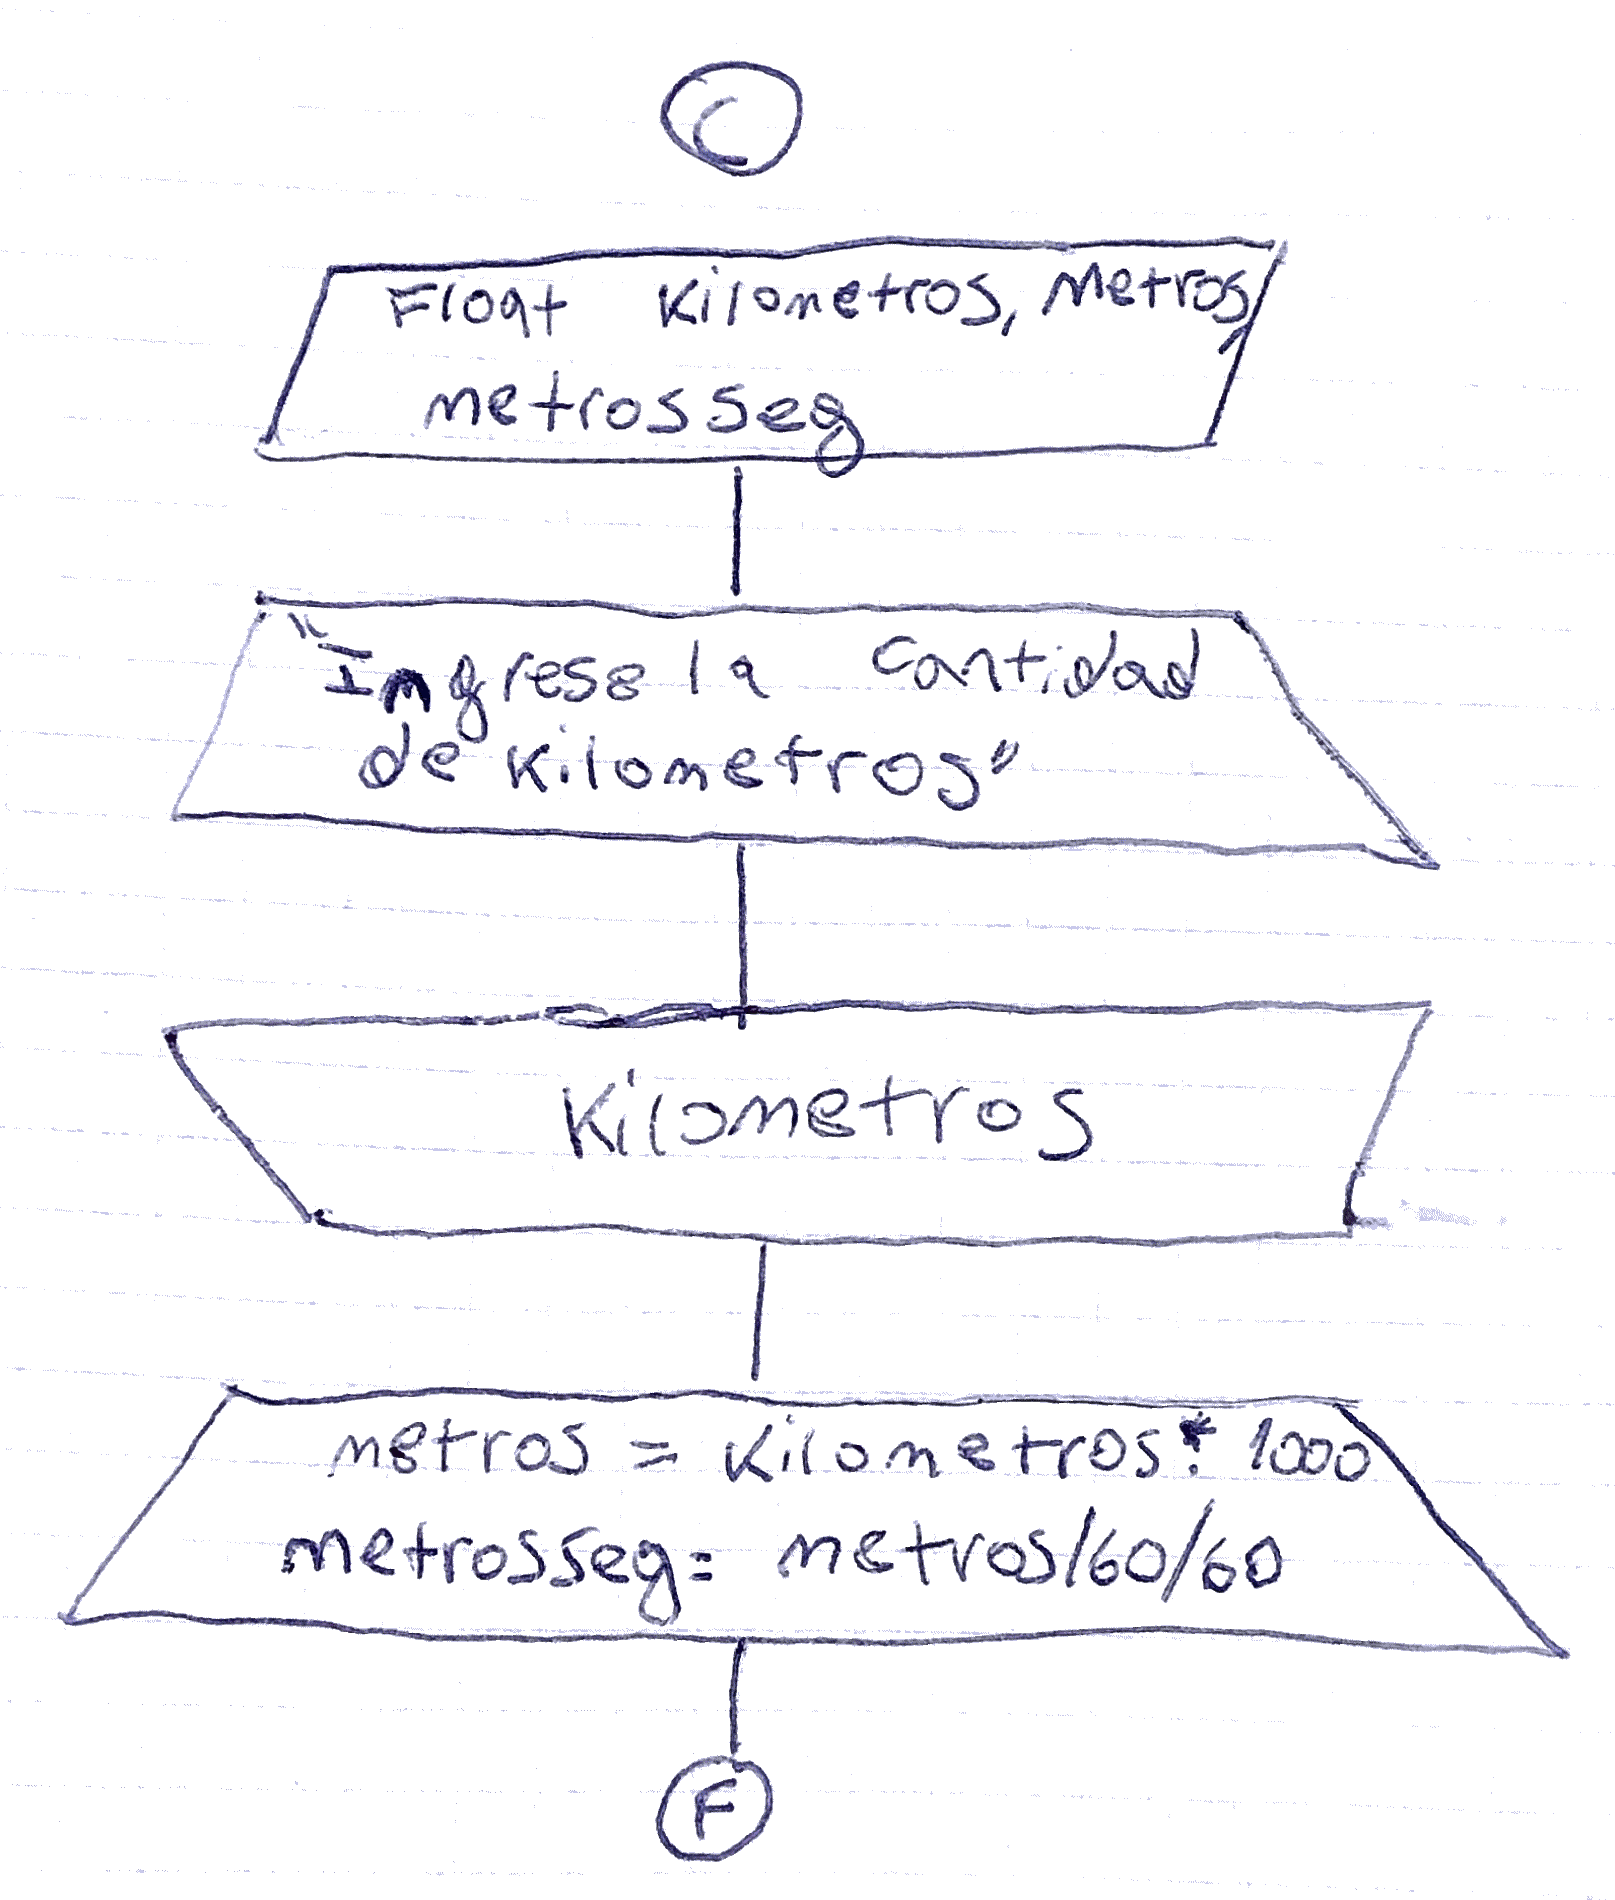 C
Float Kilometros, Metros,
metrosseg
"Ingrese la cantidad
de Kilometros"
Kilometros
metros = Kilometros * 1000
metrosseg = metros/60/60
F